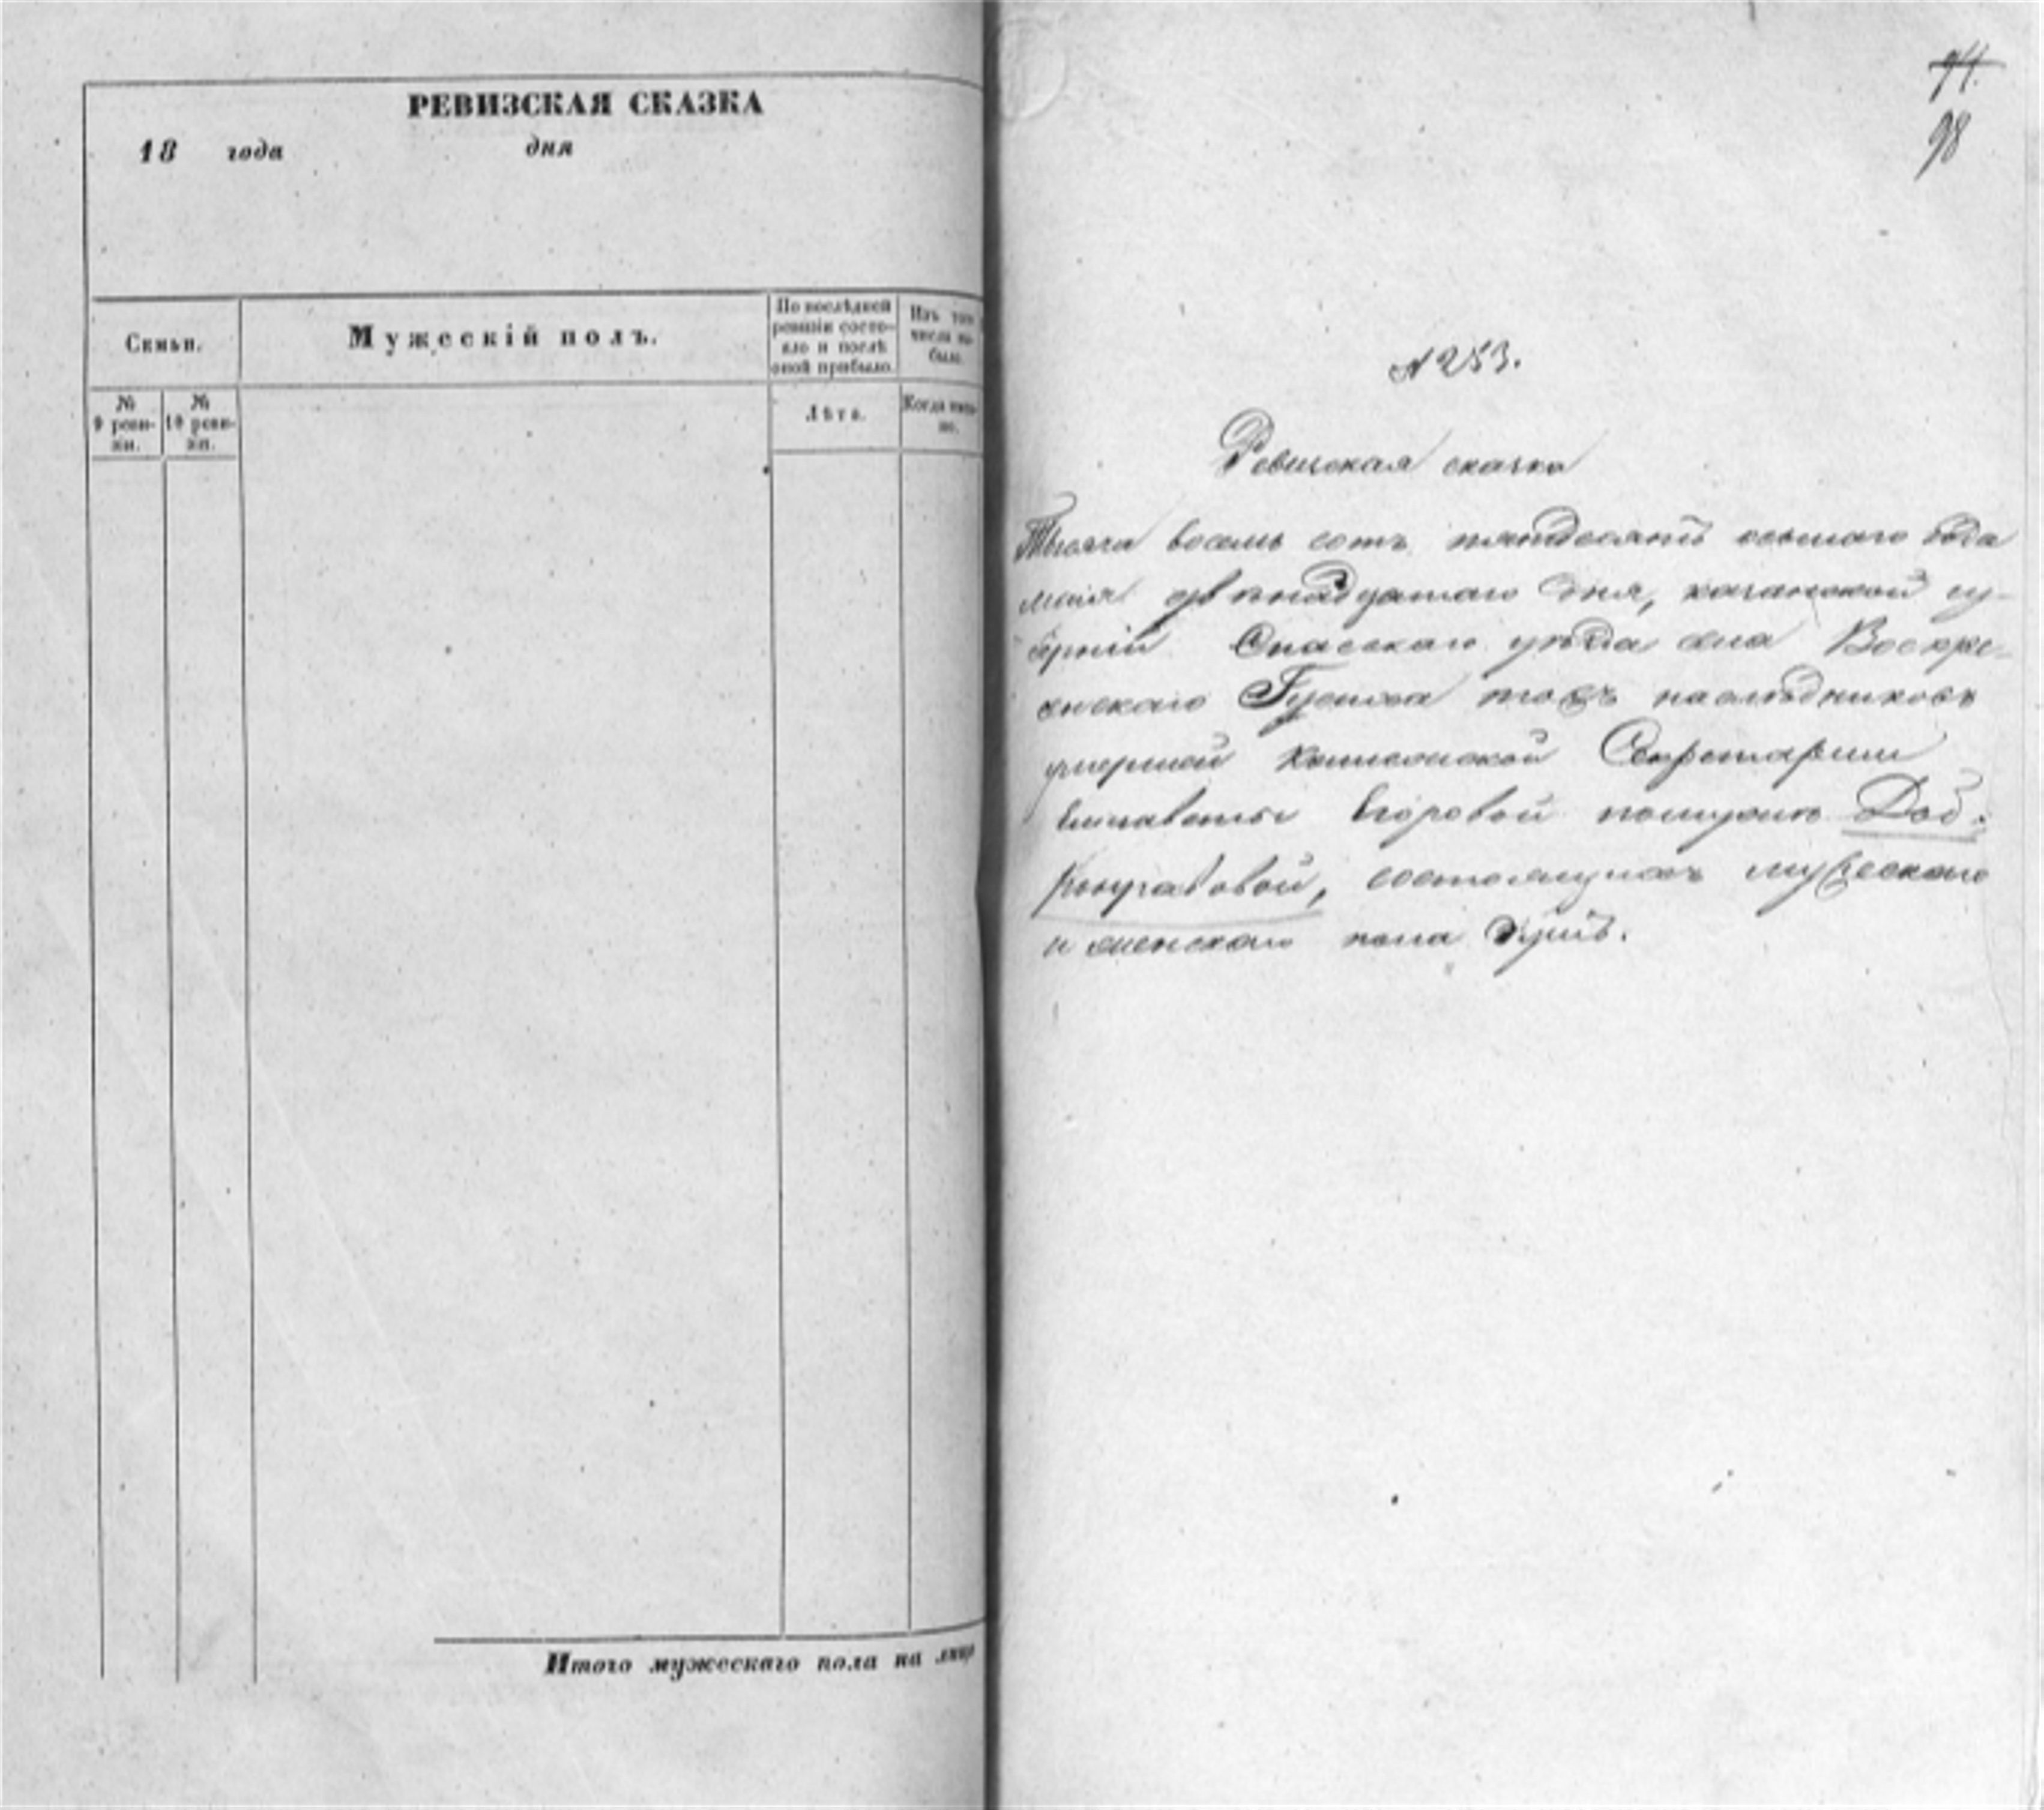 РЕВИЗСКАЯ СКАЗКА
18 года дня
Семьи.
Мужескій полъ.
По послѣдней ревизіи состояло и послѣ оной прибыло.
Изъ того числа выбыло.
№ 9 ревизіи.
№ 10 ревизіи.
Лѣта.
Когда именно.
Итого мужескаго пола на лицо
74.
98
№ 253.
Ревизская сказка
Тысяча восемь сотъ пятьдесятъ осьмаго года
маія двѣнадцатаго дня, казанской гу-
берніи Спасскаго уѣзда села Воскре-
сенскаго тожъ наслѣдниковъ
умершей Секретарши
Елизаветы Егоровой Доб-
состоящихъ мужескаго
и женскаго пола душъ.